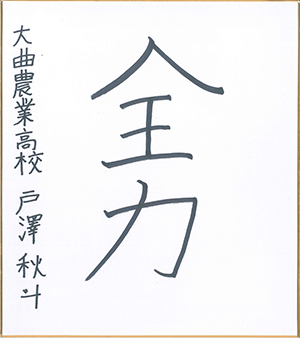 全力
大曲農業高校 戸澤秋斗